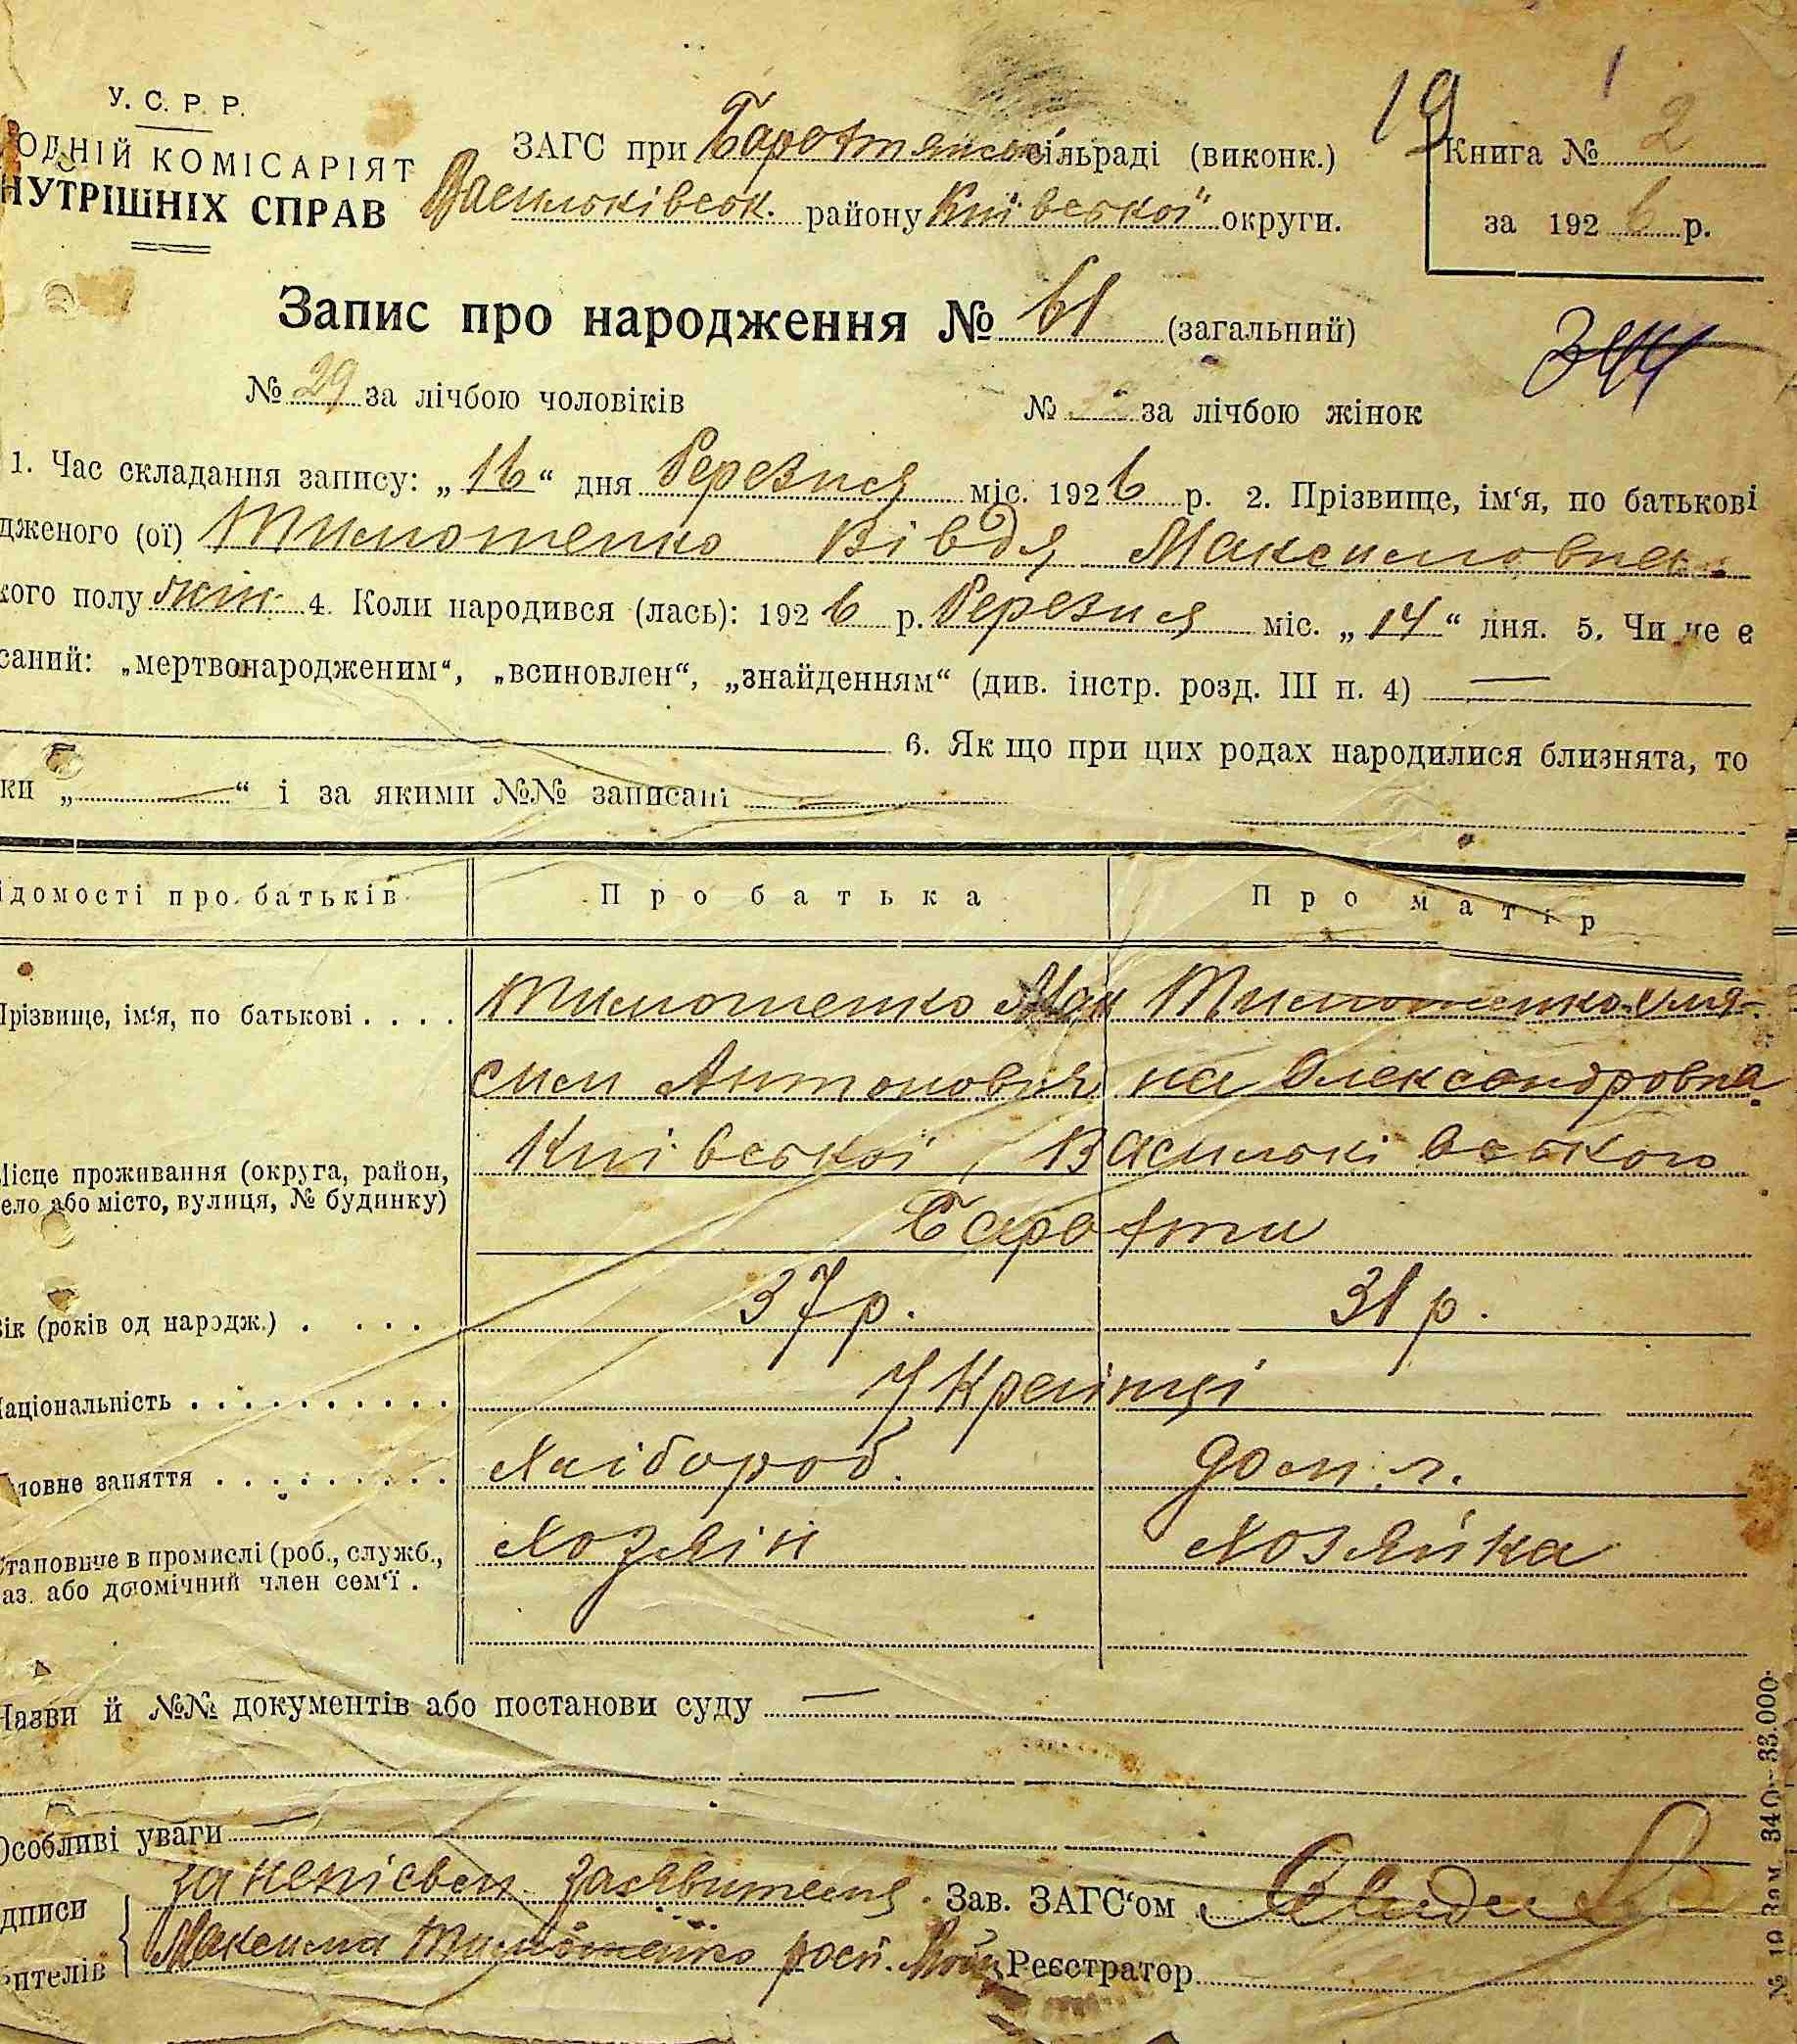 У. С. Р. Р.
ОДНІЙ КОМІСАРІЯТ
НУТРІШНІХ СПРАВ
ЗАГС при Барахтянськ сільраді (виконк.)
Васильківськ. району Київської округи.
19
Книга № 2
за 1926 р.
Запис про народження № 61 (загальний)
№ 29 за лічбою чоловіків № 32 за лічбою жінок
1. Час складання запису: „16“ дня Березня міс. 1926 р. 2. Прізвище, ім‘я, по батькові
дженого (ої) Тимошенко Вівдя Максимовна
кого полу жін 4. Коли народився (лась): 1926 р. Березня міс. „14“ дня. 5. Чи не є
саний: „мертвонародженим“, „всиновлен“, „знайденням“ (див. інстр. розд. III п. 4) —
6. Як що при цих родах народилися близнята, то
ки „—“ і за якими №№ записані —
ідомості про батьків Про батька Про матір
Прізвище, ім‘я, по батькові . . . . Тимошенко Мак Тимошенко Уля-
сим Антонович на Олександровна
Місце проживання (округа, район, Київської, Васильківського
ело або місто, вулиця, № будинку) Барахти
Вік (років од народж.) . . . . 37 р. 31 р.
Національність . . . . . . . . . . Українці
ловне заняття . . . . . . . . . Хлібороб. дом. г.
Становище в промислі (роб., служб., Хозяін Хозяйка
аз. або допомічний член сем‘ї .
Назви й №№ документів або постанови суду —
Особливі уваги —
дписи за неписьм. заявителя. Зав. ЗАГС‘ом
ителів Максима Тимошенко росп. Реєстратор
№ 10 Зам. 340—33.000.